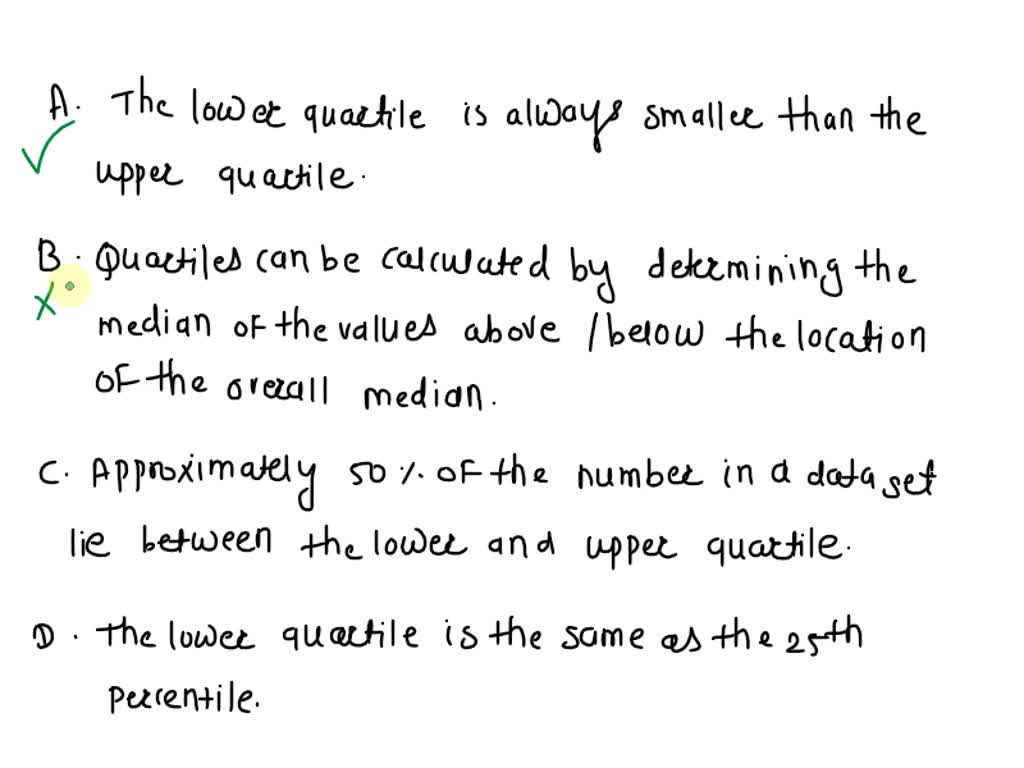 A. The lower quartile is always smaller than the
upper quartile.
B. Quartiles can be calculated by determining the
median of the values above /below the location
of the overall median.
C. Approximately 50 % of the number in a data set
lie between the lower and upper quartile.
D. The lower quartile is the same as the 25th
percentile.